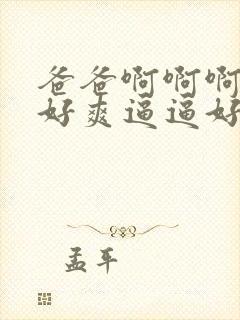 爸爸啊啊啊
好爽逼逼好
孟平